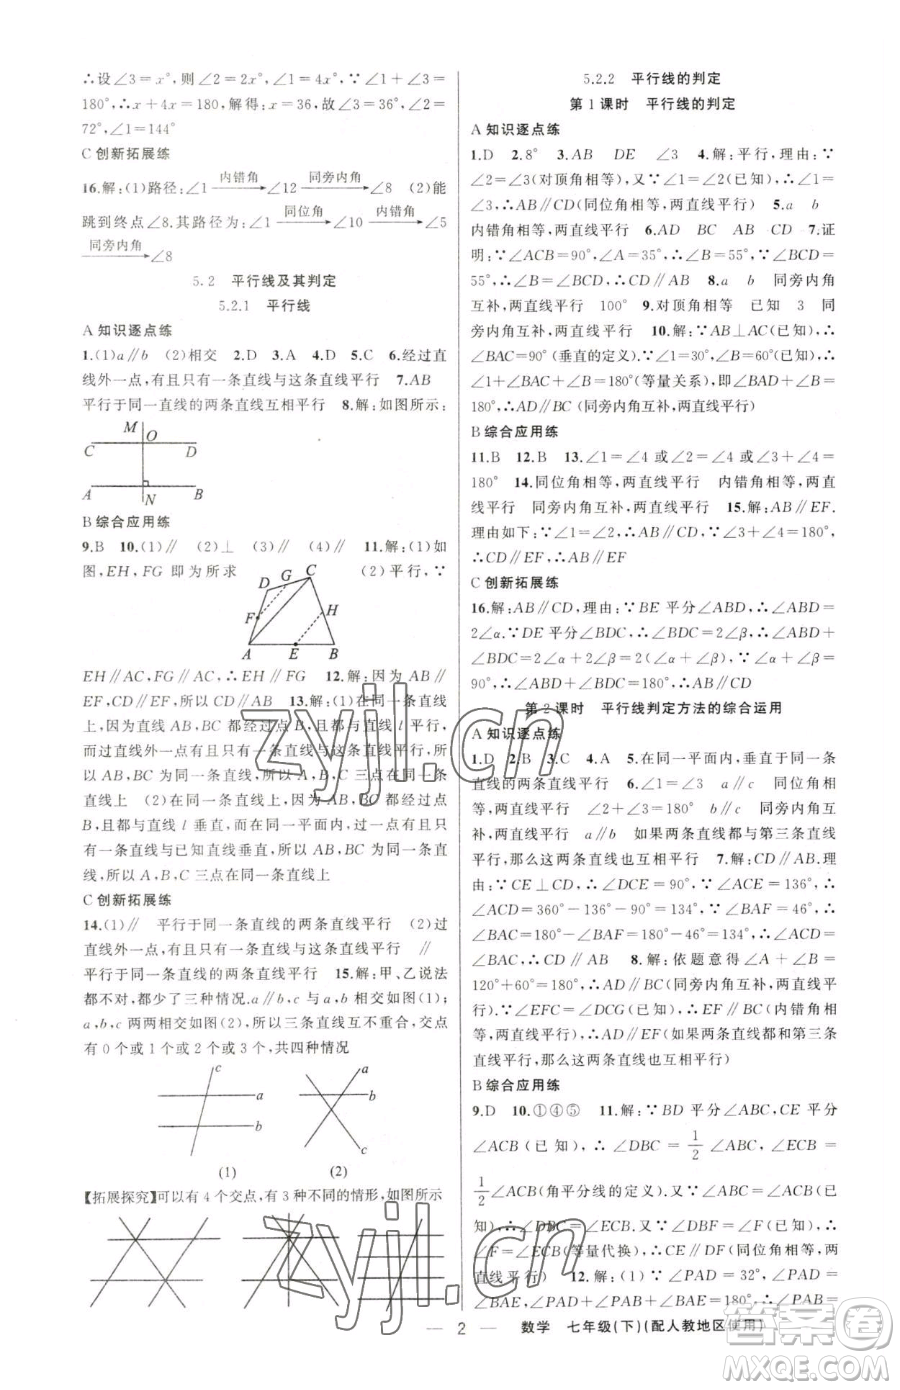 ∴设∠3=x°,则∠2=2x°,∠1=4x°,∵∠1+∠3=
180°,∴x+4x=180,解得:x=36,故∠3=36°,∠2=
72°,∠1=144°
C 创新拓展练
16.解:(1)路径:∠1 内错角 ∠12 同旁内角 ∠8 (2)能
跳到终点∠8.其路径为:∠1 同位角 ∠10 内错角 ∠5
同旁内角 ∠8
5.2 平行线及其判定
5.2.1 平行线
A 知识逐点练
1.(1)a∥b (2)相交 2.D 3.A 4.D 5.C 6.经过直
线外一点,有且只有一条直线与这条直线平行 7.AB
平行于同一直线的两条直线互相平行 8.解:如图所示:
M
C O D
A N B
B 综合应用练
9.B 10.(1)∥ (2)⊥ (3)∥ (4)∥ 11.解:(1)如
图,EH,FG 即为所求 (2)平行,∵
D G C
F H
A E B
EH∥AC,FG∥AC,∴EH∥FG 12.解:因为 AB∥
EF,CD∥EF,所以 CD∥AB 13.解:(1)在同一直线
上,因为 AB,BC 都经过点 B,且都与直线 l 平行,
而过直线外一点有且只有一条直线与已知直线平行,所
以 AB,BC 为同一条直线,所以 A,B,C 三点在同一条
直线上 (2)在同一条直线上,因为 AB,BC 都经过点
B,且都与直线 l 垂直,而在同一平面内,过一点有且只
有一条直线与已知直线垂直,所以 AB,BC 为同一条直
线,所以 A,B,C 三点在同一条直线上
C 创新拓展练
14.(1)∥ 平行于同一条直线的两条直线平行 (2)过
直线外一点,有且只有一条直线与这条直线平行 ∥
平行于同一条直线的两条直线平行 15.解:甲、乙说法
都不对,都少了三种情况.a∥b,c 与 a,b 相交如图(1);
a,b,c 两两相交如图(2),所以三条直线互不重合,交点
有 0 个或 1 个或 2 个或 3 个,共四种情况
c a
a b
b c
(1) (2)
【拓展探究】可以有 4 个交点,有 3 种不同的情形,如图所示
5.2.2 平行线的判定
第 1 课时 平行线的判定
A 知识逐点练
1.D 2.8° 3.AB DE ∠3 4.解:平行,理由:∵
∠2=∠3(对顶角相等),又∵∠1=∠2(已知),∴∠1=
∠3,∴AB∥CD(同位角相等,两直线平行) 5.a b
内错角相等,两直线平行 6.AD BC AB CD 7.证
明:∵∠ACB=90°,∠A=35°,∴∠B=55°,∵∠BCD=
55°,∴∠B=∠BCD,∴CD∥AB 8.a b 同旁内角
互补,两直线平行 100° 9.对顶角相等 已知 3 同
旁内角互补,两直线平行 10.解:∵AB⊥AC(已知),∴
∠BAC=90°(垂直的定义).∵∠1=30°,∠B=60°(已知),∴
∠1+∠BAC+∠B=180°(等量关系),即∠BAD+∠B=
180°,∴AD∥BC(同旁内角互补,两直线平行)
B 综合应用练
11.B 12.B 13.∠1=∠4 或∠2=∠4 或∠3+∠4=
180° 14.同位角相等,两直线平行 内错角相等,两直
线平行 同旁内角互补,两直线平行 15.解:AB∥EF.
理由如下:∵∠1=∠2,∴AB∥CD,∵∠3+∠4=180°,
∴CD∥EF,∴AB∥EF
C 创新拓展练
16.解:AB∥CD,理由:∵BE 平分∠ABD,∴∠ABD=
2∠α.∵DE 平分∠BDC,∴∠BDC=2∠β,∴∠ABD+
∠BDC=2∠α+2∠β=2(∠α+∠β),∵∠α+∠β=
90°,∴∠ABD+∠BDC=180°,∴AB∥CD
第 2 课时 平行线判定方法的综合运用
A 知识逐点练
1.D 2.B 3.C 4.A 5.在同一平面内,垂直于同一条
直线的两条直线平行 6.∠1=∠3 a∥c 同位角相
等,两直线平行 ∠2+∠3=180° b∥c 同旁内角互
补,两直线平行 a∥b 如果两条直线都与第三条直线
平行,那么这两条直线也互相平行 7.解:CD∥AB.理
由:∵CE⊥CD,∴∠DCE=90°,∵∠ACE=136°,∴
∠ACD=360°-136°-90°=134°,∵∠BAF=46°,∴
∠BAC=180°-∠BAF=180°-46°=134°,∴∠ACD=
∠BAC,∴CD∥AB 8.解:依题意得∠B+∠DAB=
120°+60°=180°,∴AD∥BC(同旁内角互补,两直线平
行),∵∠EFC=∠DCG(已知),∴EF∥BC(内错角相
等,两直线平行),∴AD∥EF(如果两条直线都和第三条
直线平行,那么这两条直线也互相平行)
B 综合应用练
9.D 10.①④⑤ 11.解:∵BD 平分∠ABC,CE 平分
∠ACB(已知),∴∠DBC=1/2∠ABC,∠ECB=
1/2∠ACB(角平分线的定义),又∵∠ABC=∠ACB(已
知),∴∠DBC=∠ECB.又∵∠DBF=∠F(已知),∴
∠F=∠ECB(等量代换),∴CE∥DF(同位角相等,两
直线平行) 12.解:(1)∵∠PAD=32°,∠PAD=
∠BAE,∠PAD+∠DAB+∠BAE=180°,∴∠DAB=
2 数学 七年级(下)(配人教地区使用)
zyjl.cn
zyjl.cn
答案圈
MXQE.COM